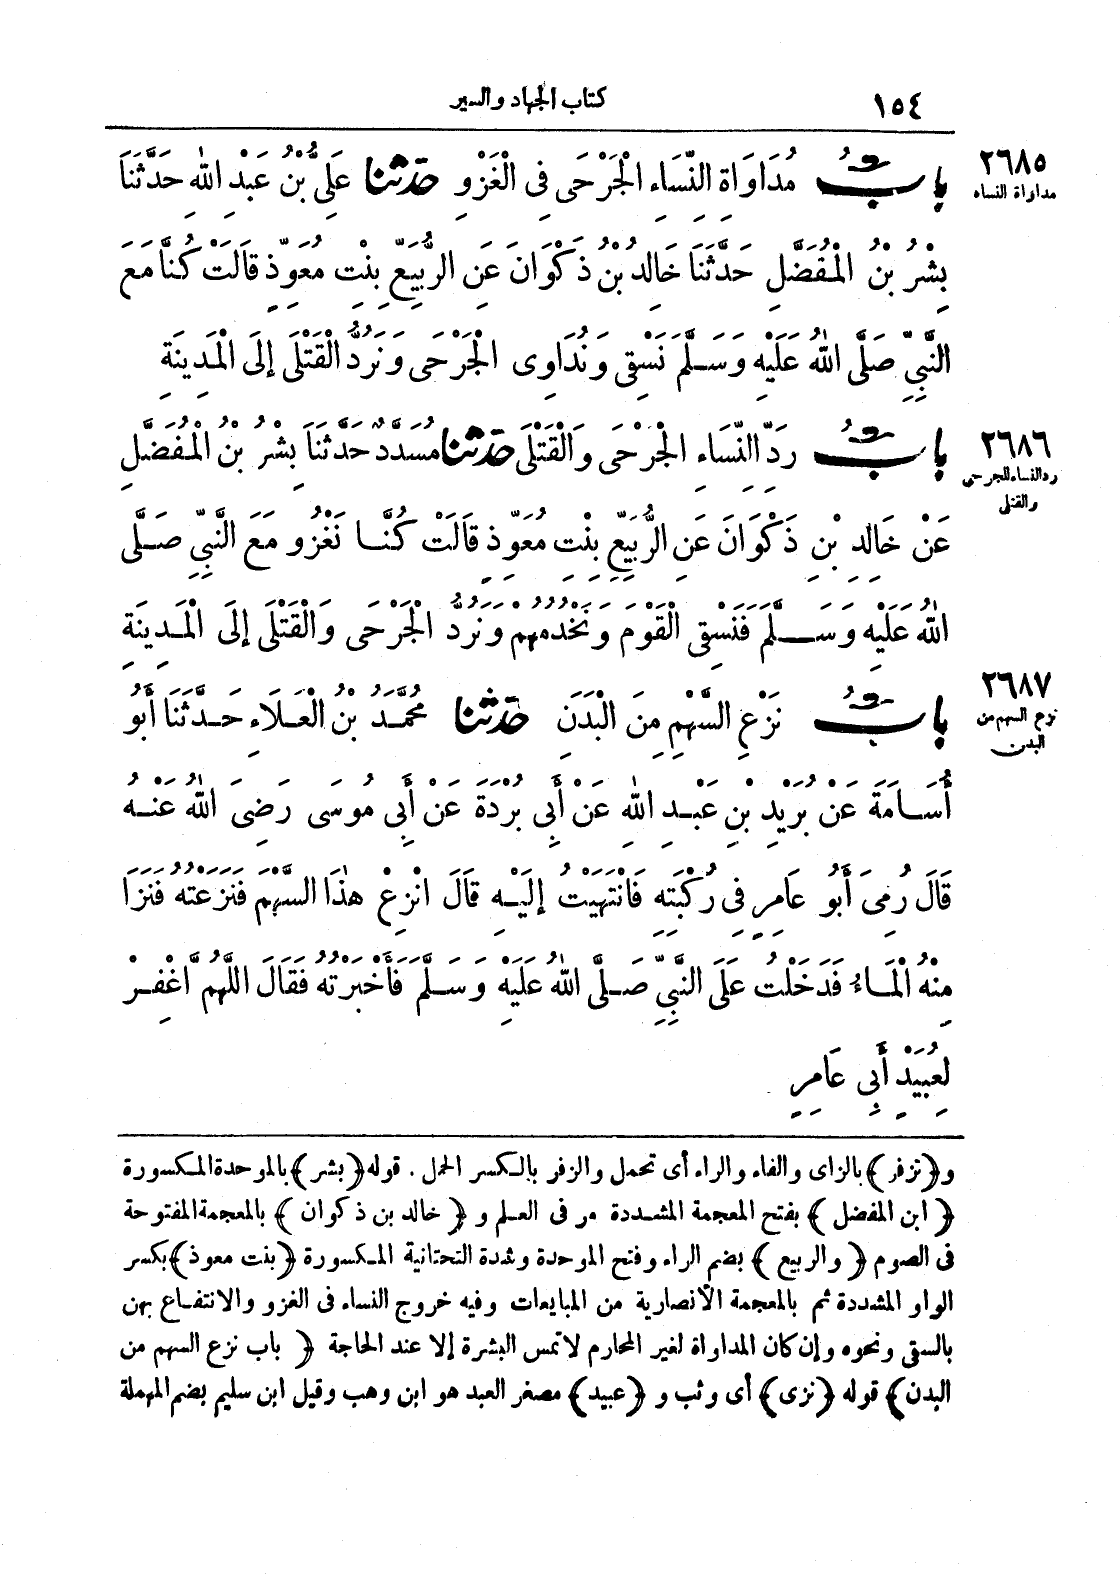 ١٥٤ كتاب الجهاد والسير
٢٦٨٥
مداواة النساء
بابُ مُدَاوَاةِ النِّسَاءِ الْجَرْحَى فِي الْغَزْوِ حَدَّثَنَا عَلِيُّ بْنُ عَبْدِ اللهِ حَدَّثَنَا
بِشْرُ بْنُ الْمُفَضَّلِ حَدَّثَنَا خَالِدُ بْنُ ذَكْوَانَ عَنِ الرُّبَيِّعِ بِنْتِ مُعَوِّذٍ قَالَتْ كُنَّا مَعَ
النَّبِيِّ صَلَّى اللهُ عَلَيْهِ وَسَلَّمَ نَسْقِى وَنُدَاوِى الْجَرْحَى وَنَرُدُّ الْقَتْلَى إِلَى الْمَدِينَةِ
٢٦٨٦
رد النساء للجرحى
والقتلى
بابُ رَدِّ النِّسَاءِ الْجَرْحَى وَالْقَتْلَى حَدَّثَنَا مُسَدَّدٌ حَدَّثَنَا بِشْرُ بْنُ الْمُفَضَّلِ
عَنْ خَالِدِ بْنِ ذَكْوَانَ عَنِ الرُّبَيِّعِ بِنْتِ مُعَوِّذٍ قَالَتْ كُنَّا نَغْزُو مَعَ النَّبِيِّ صَلَّى
اللهُ عَلَيْهِ وَسَلَّمَ فَنَسْقِى الْقَوْمَ وَنَخْدُمُهُمْ وَنَرُدُّ الْجَرْحَى وَالْقَتْلَى إِلَى الْمَدِينَةِ
٢٦٨٧
نزع السهم من
البدن
بابُ نَزْعِ السَّهْمِ مِنَ الْبَدَنِ حَدَّثَنَا مُحَمَّدُ بْنُ الْعَلَاءِ حَدَّثَنَا أَبُو
أُسَامَةَ عَنْ بُرَيْدِ بْنِ عَبْدِ اللهِ عَنْ أَبِى بُرْدَةَ عَنْ أَبِى مُوسَى رَضِىَ اللهُ عَنْهُ
قَالَ رُمِىَ أَبُو عَامِرٍ فِى رُكْبَتِهِ فَانْتَهَيْتُ إِلَيْهِ قَالَ انْزِعْ هٰذَا السَّهْمَ فَنَزَعْتُهُ فَنَزَا
مِنْهُ الْمَاءُ فَدَخَلْتُ عَلَى النَّبِيِّ صَلَّى اللهُ عَلَيْهِ وَسَلَّمَ فَأَخْبَرْتُهُ فَقَالَ اللَّهُمَّ اغْفِرْ
لِعُبَيْدٍ أَبِى عَامِرٍ
و(تزفر) بالزاى والفاء والراء أى تحمل والزفر بالكسر الحمل . قوله (بشر) بالموحدة المكسورة
(ابن المفضل) بفتح المعجمة المشددة مر فى العلم و (خالد بن ذكوان) بالمعجمة المفتوحة
فى الصوم (والربيع) بضم الراء وفتح الموحدة وشدة التحتانية المكسورة (بنت معوذ) بكسر
الواو المشددة ثم بالمعجمة الأنصارية من المبايعات وفيه خروج النساء فى الغزو والانتفاع بهن
بالسقى ونحوه وإن كان المداواة لغير المحارم لا تمس البشرة إلا عند الحاجة (باب نزع السهم من
البدن) قوله (نزى) أى وثب و (عبيد) مصغر العبد هو ابن وهب وقيل ابن سليم بضم المهملة